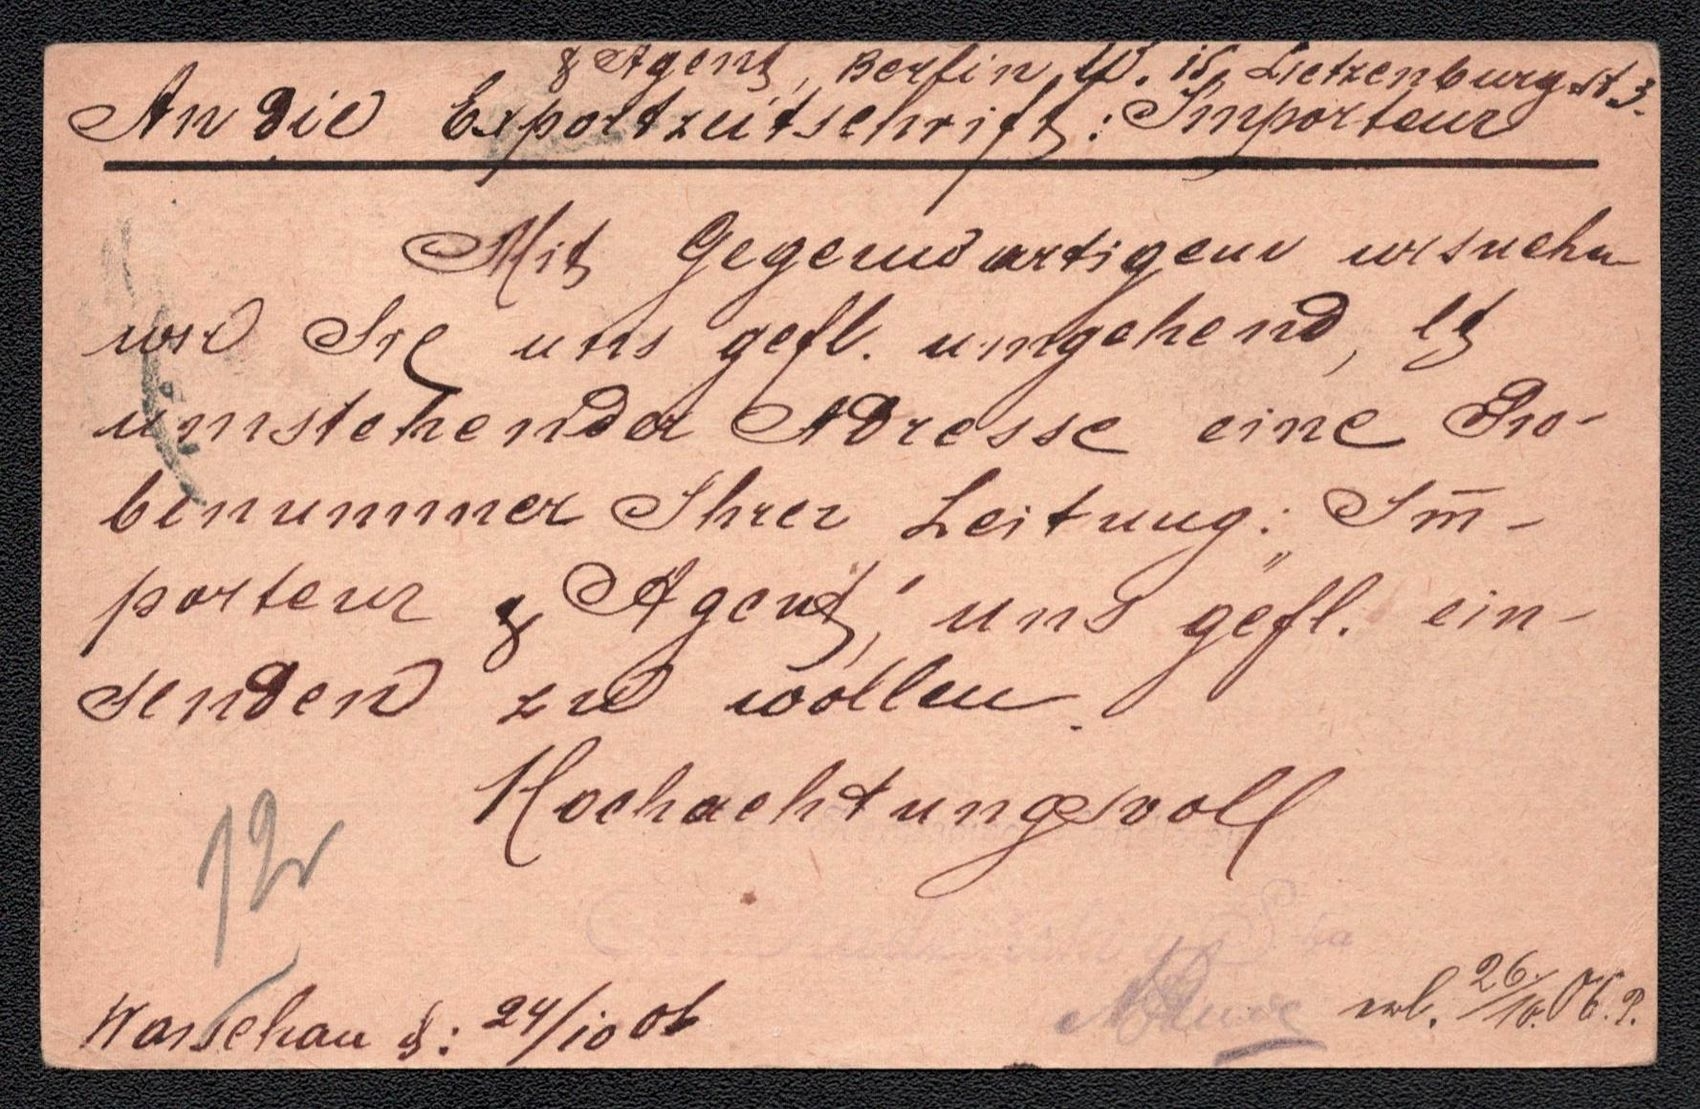 & Agent, Berlin W. 15, Lietzenburgst 3.
An die Exportzeitschrift: Importeur
Mit Gegenwärtigem ersuchen
wir Sie uns gefl. umgehend, lt
umstehender Adresse eine Pro-
benummer Ihrer Leitung: „Im̄-
porteur & Agent“, uns gefl. ein-
senden zu wollen.
Hochachtungsvoll
12
Warschau d: 24/10 06
26./10. 06. P.